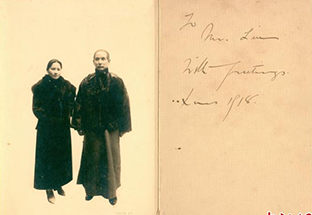 To
Mr. Lim
With greetings.
Xmas 1918.